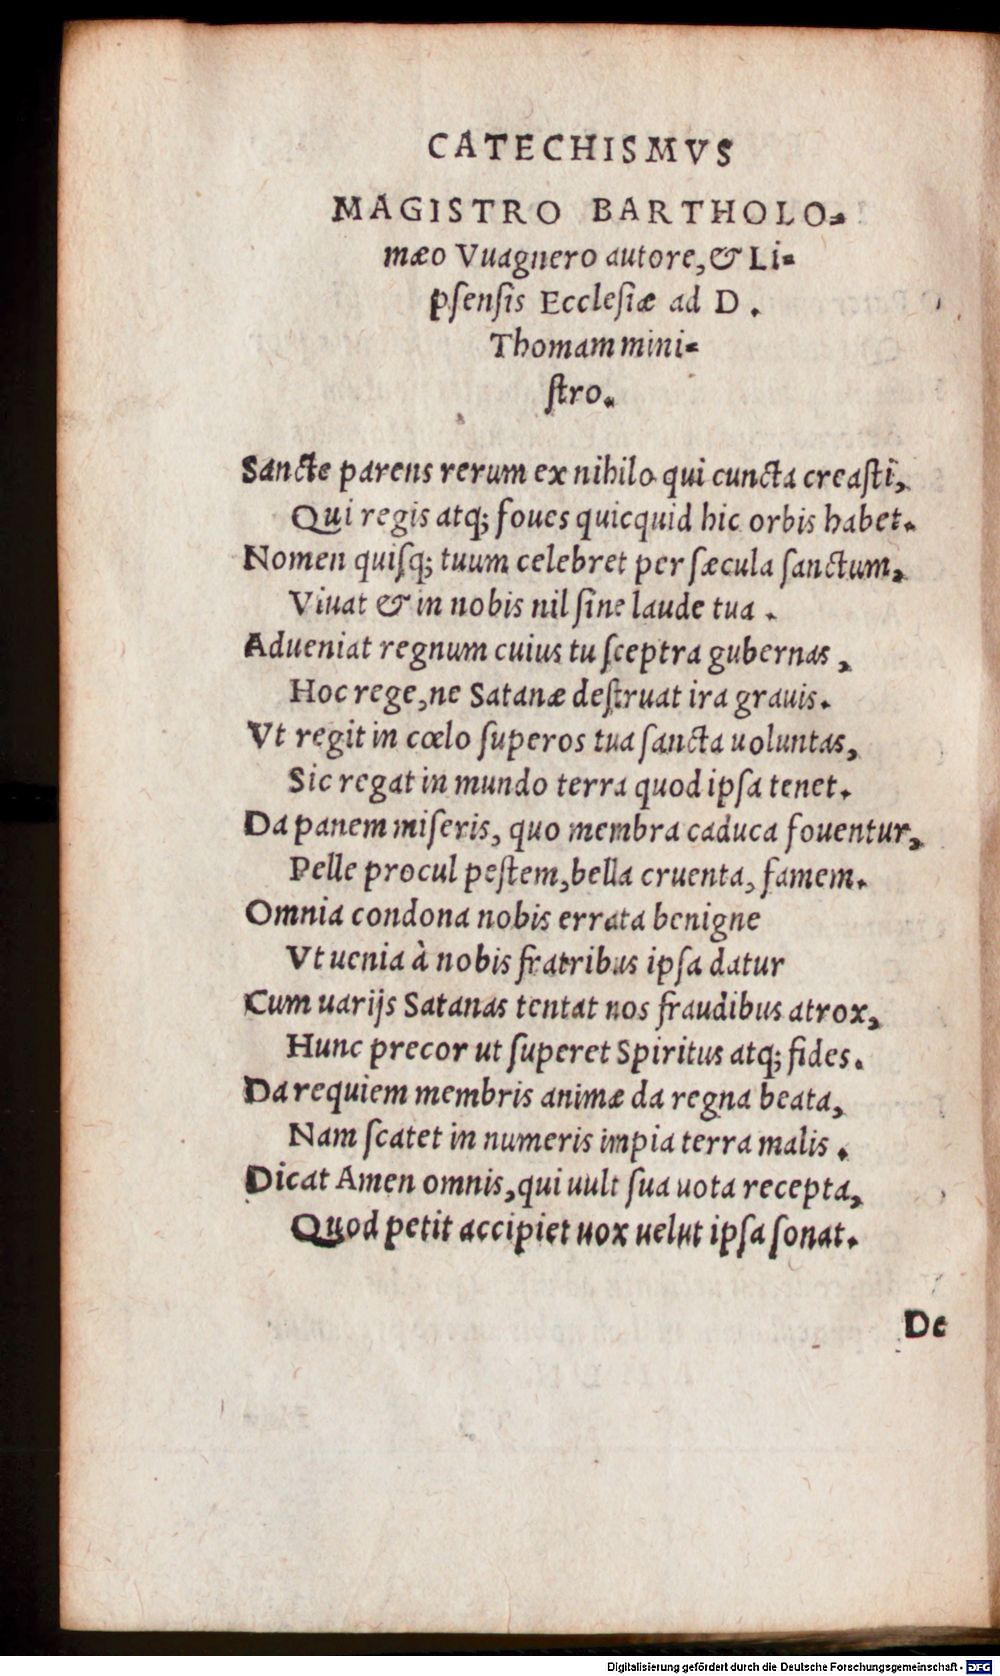 CATECHISMVS
MAGISTRO BARTHOLO-
mæo Vuagnero autore, & Li-
pſenſis Eccleſiæ ad D.
Thomam mini-
ſtro.
Sancte parens rerum ex nihilo qui cuncta creaſti,
Qui regis atq; foues quicquid hic orbis habet.
Nomen quiſq; tuum celebret per ſæcula ſanctum,
Viuat & in nobis nil ſine laude tua.
Adueniat regnum cuius tu ſceptra gubernas,
Hoc rege, ne Satanæ deſtruat ira grauis.
Vt regit in cœlo ſuperos tua ſancta uoluntas,
Sic regat in mundo terra quod ipſa tenet.
Da panem miſeris, quo membra caduca fouentur,
Pelle procul peſtem, bella cruenta, famem.
Omnia condona nobis errata benigne
Vt uenia à nobis fratribus ipſa datur
Cum uarijs Satanas tentat nos fraudibus atrox,
Hunc precor ut ſuperet Spiritus atq; fides.
Da requiem membris animæ da regna beata,
Nam ſcatet in numeris impia terra malis.
Dicat Amen omnis, qui uult ſua uota recepta,
Quod petit accipiet uox uelut ipſa ſonat.
De
Digitalisierung gefördert durch die Deutsche Forschungsgemeinschaft - DFG